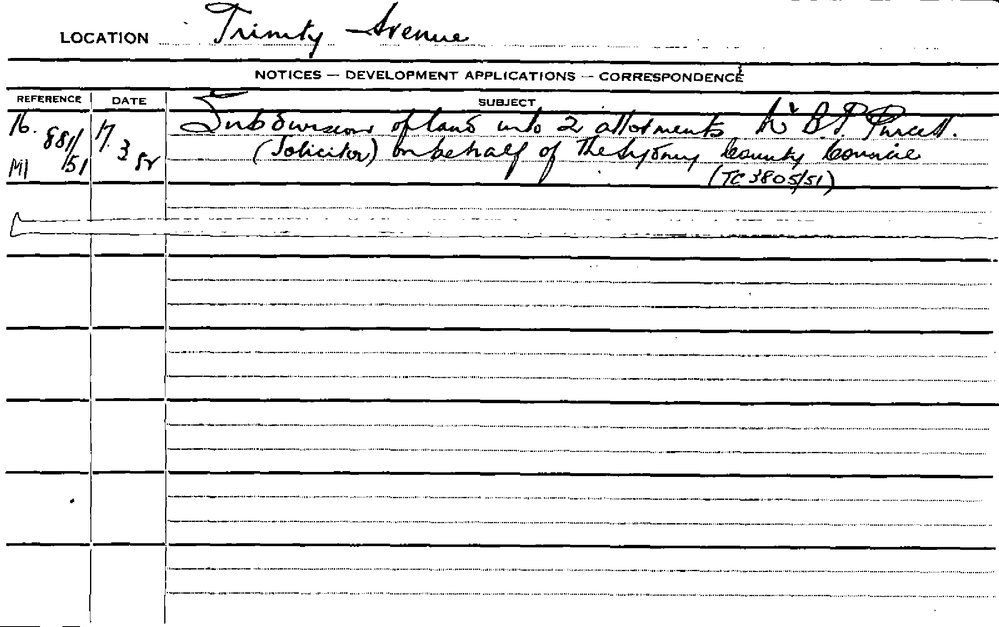 LOCATION Trinity Avenue
NOTICES — DEVELOPMENT APPLICATIONS — CORRESPONDENCE
REFERENCE DATE SUBJECT
16. 881/51 17.3.52 Subdivision of land into 2 allotments Mr B. J. Purcell.
M1 (Solicitor) on behalf of the Sydney County Council
(TC 3805/51)